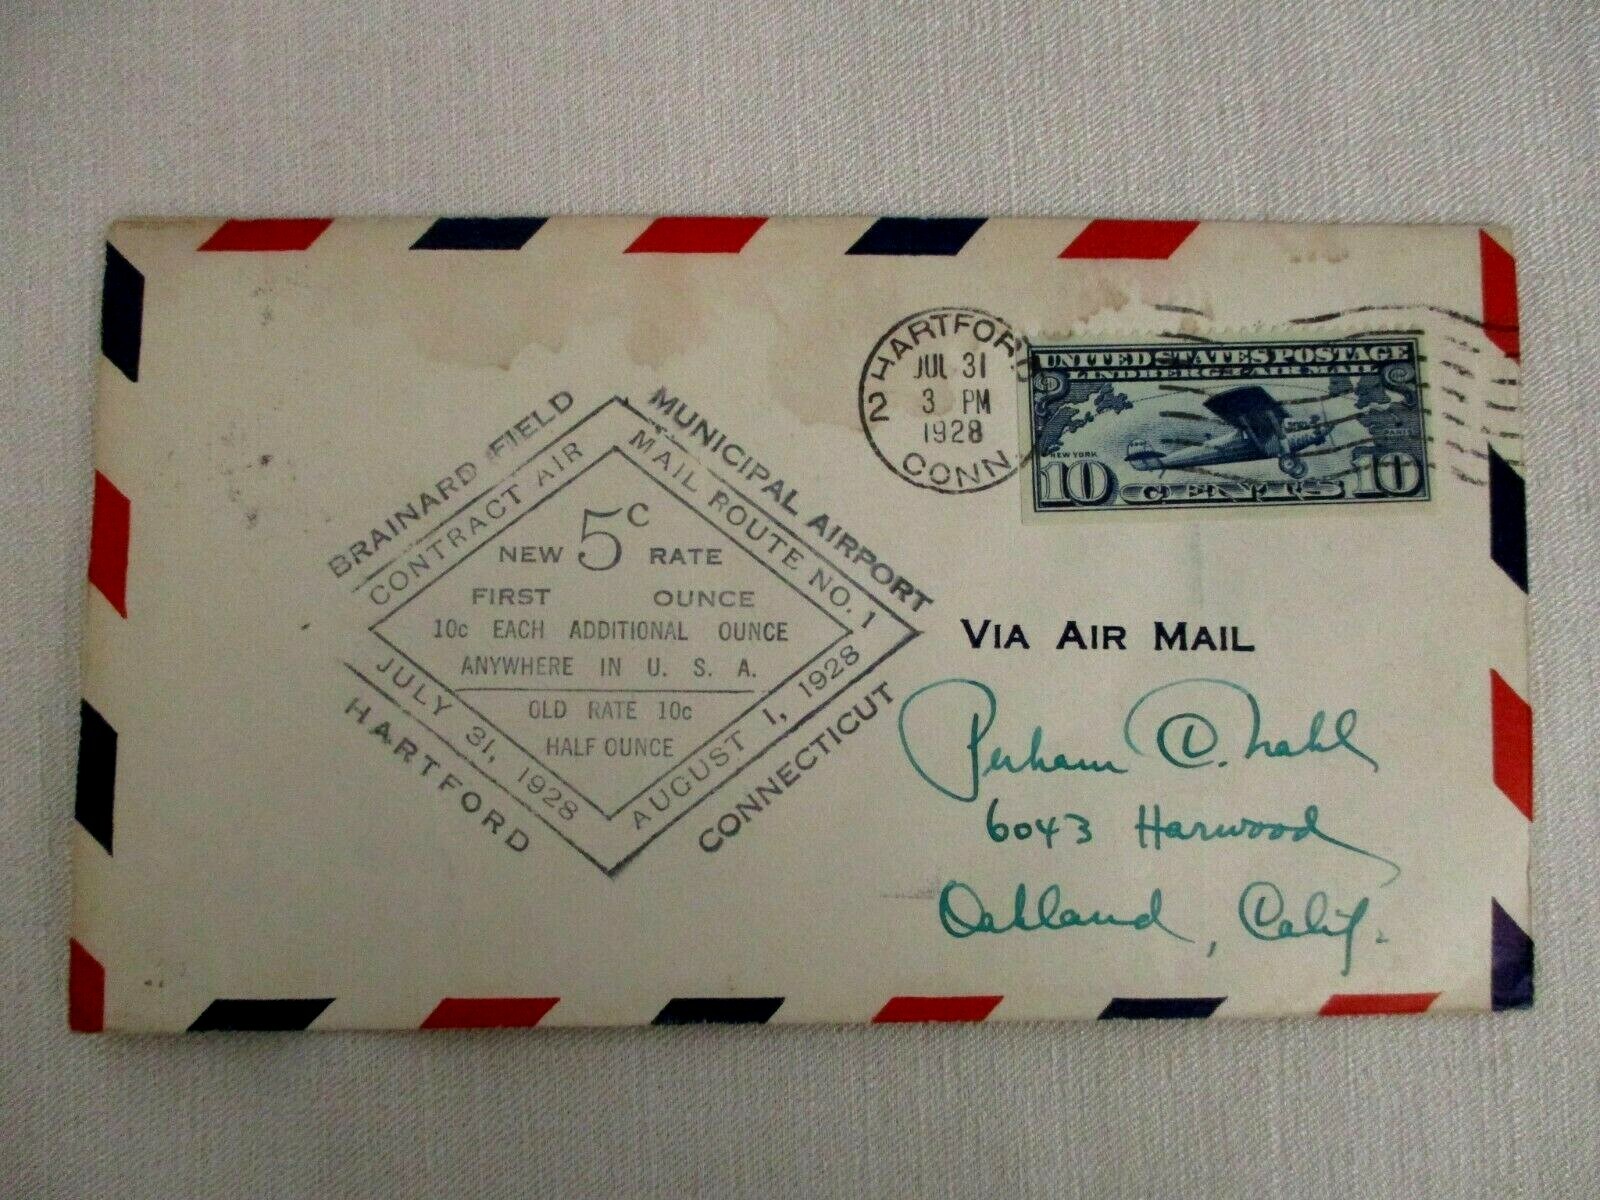 BRAINARD FIELD
MUNICIPAL AIRPORT
CONTRACT AIR
MAIL ROUTE NO. 1
NEW 5c RATE
FIRST OUNCE
10c EACH ADDITIONAL OUNCE
ANYWHERE IN U. S. A.
OLD RATE 10c
HALF OUNCE
JULY 31, 1928
AUGUST 1, 1928
HARTFORD
CONNECTICUT
2 HARTFORD
JUL 31
3 PM
1928
CONN
UNITED STATES POSTAGE
LINDBERGH AIR MAIL
NEW YORK
PARIS
10 CENTS 10
VIA AIR MAIL
Perham C. Nahl
6043 Harwood
Oakland, Calif.